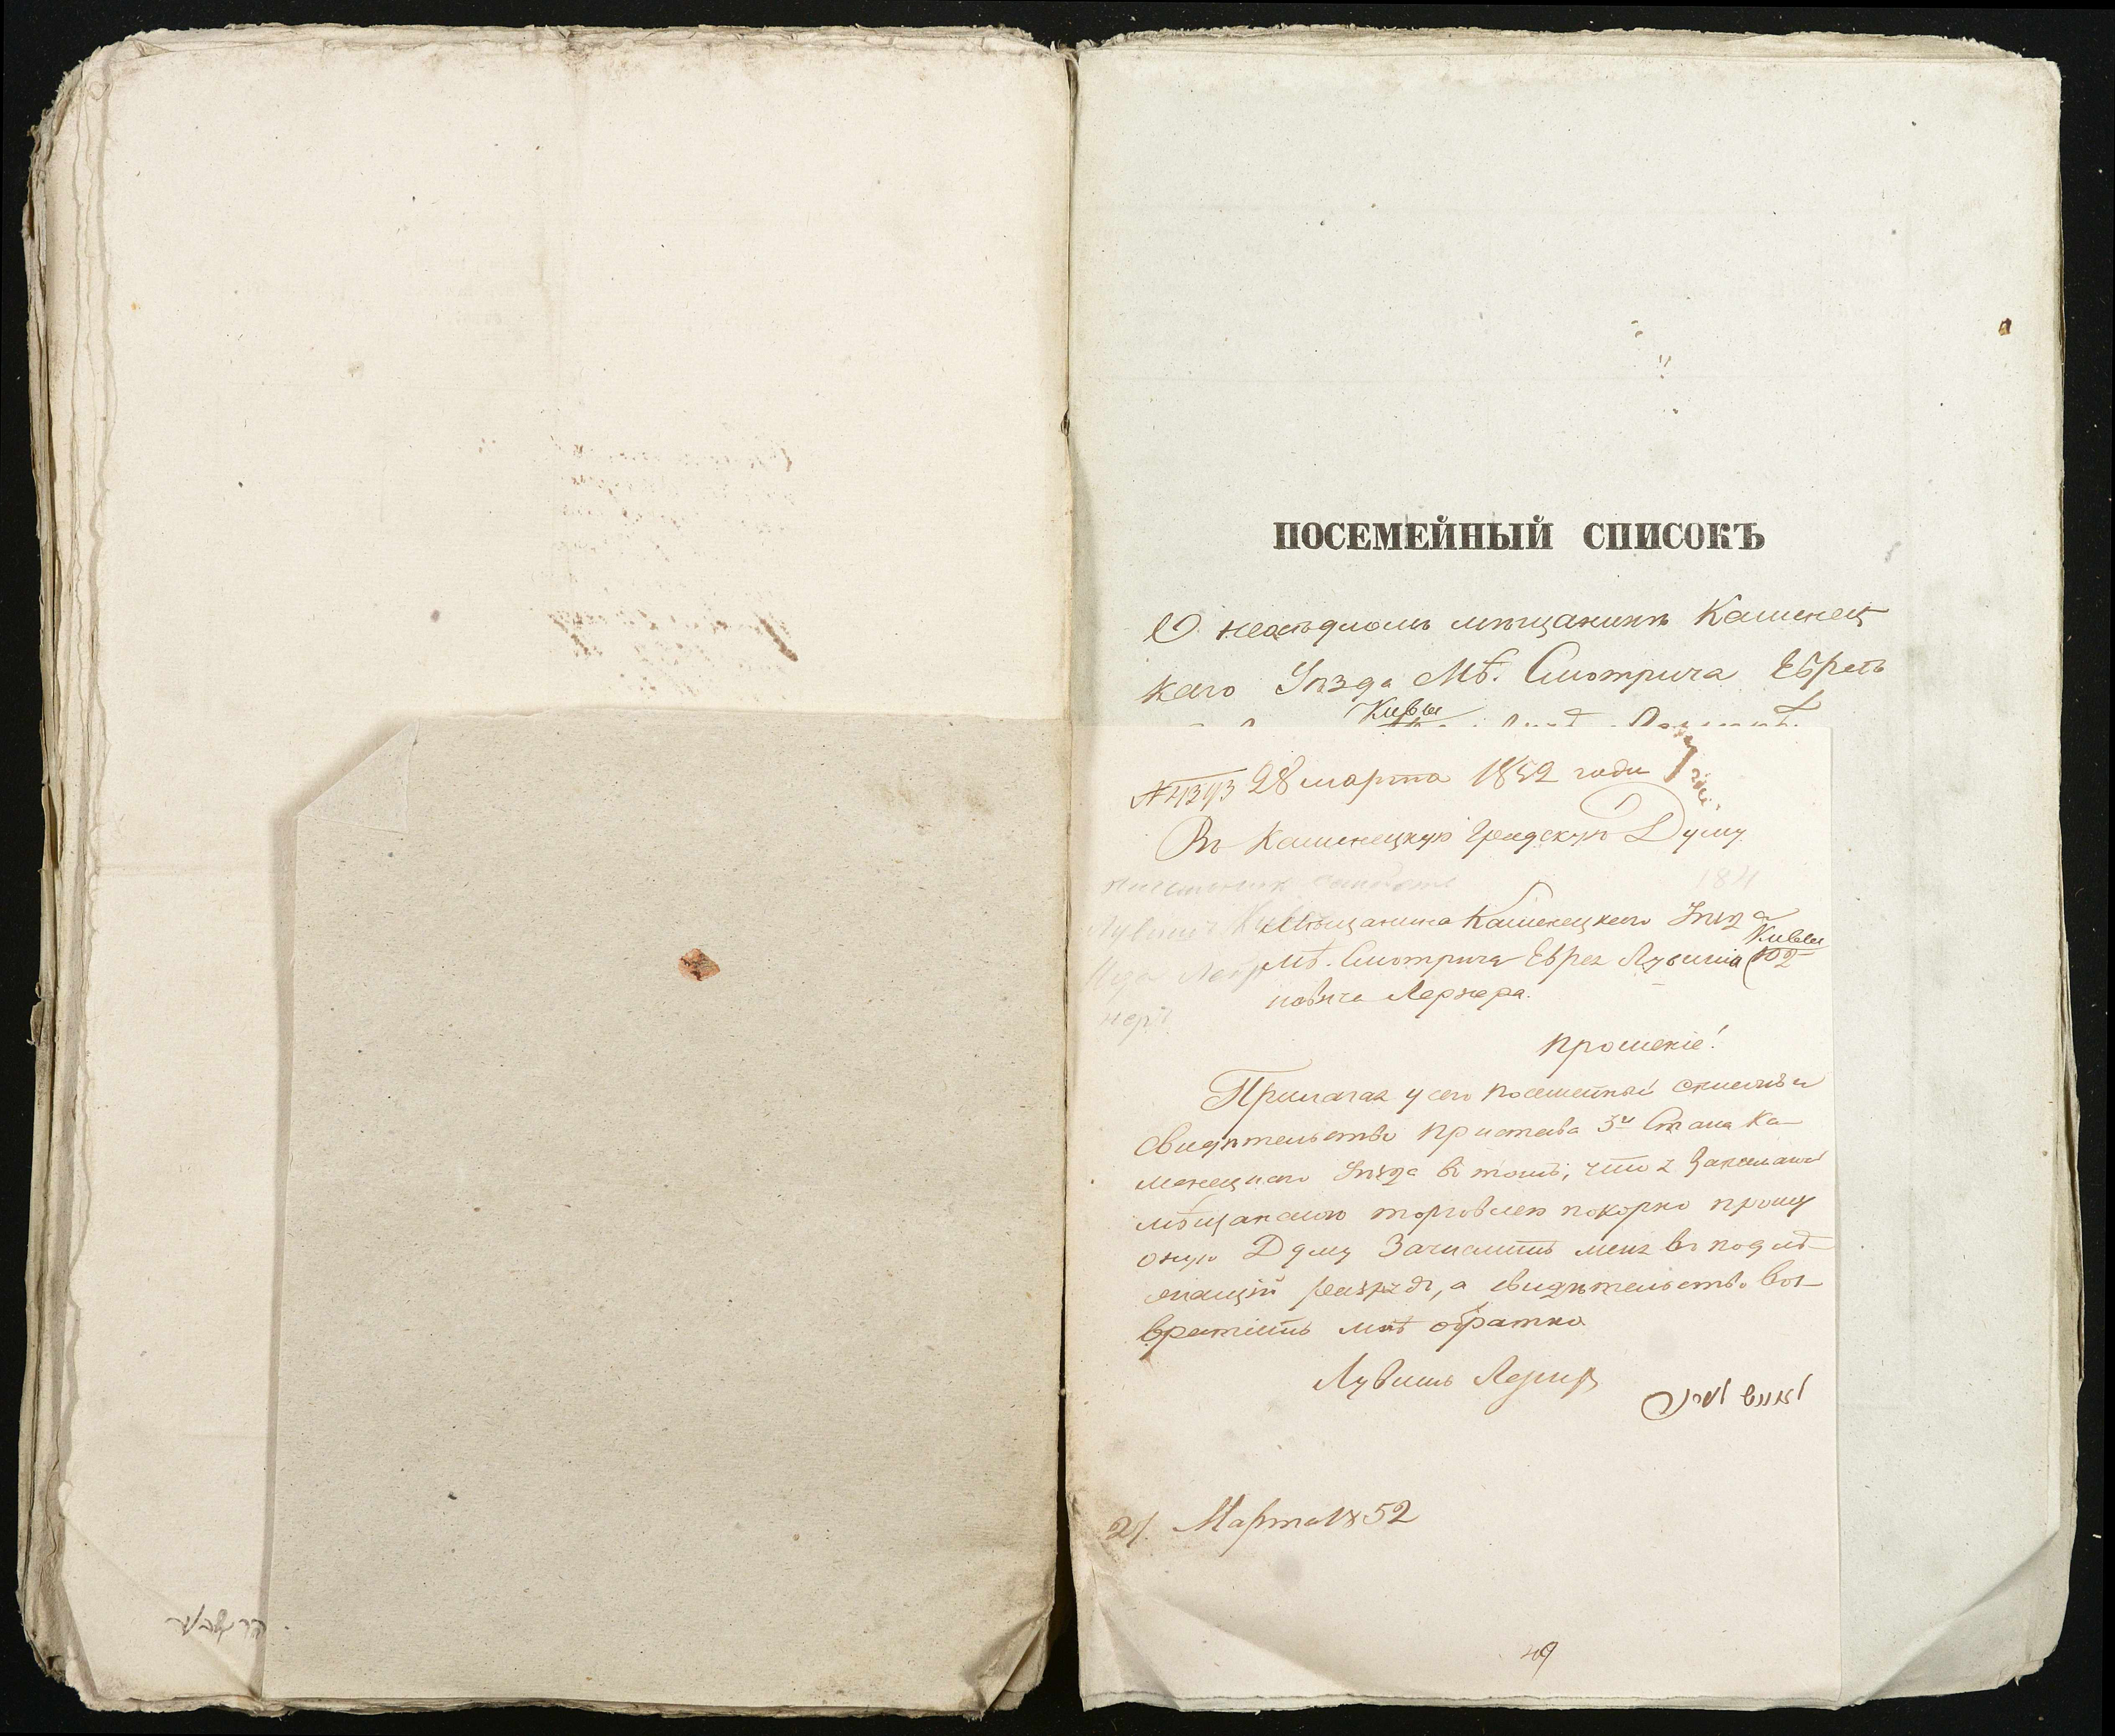 ПОСЕМЕЙНЫЙ СПИСОКЪ
О неосѣдломъ мѣщанинѣ Каменец
каго Уѣзда Мѣ. Смотрича Евреѣ
Кивы
28 марта 1852 года
Въ Каменецкую Градскую Думу
Мѣщанина Каменецкаго Уѣзда
Кивы
Мѣ. Смотрича Еврея Лувиша
новича Лернера.
Прошеніе!
Прилагая у сего посемейный списокъ и
свидѣтельство Пристава 3го Стана Ка-
менецкаго Уѣзда въ томъ, что я занимаюсь
мѣщанскою торговлею покорно прошу
оную Думу Зачислить меня въ подле-
жащій разрядъ, а свидѣтельство воз-
вратить мнѣ обратно
Лувишъ Лернеръ
Марта 1852
49